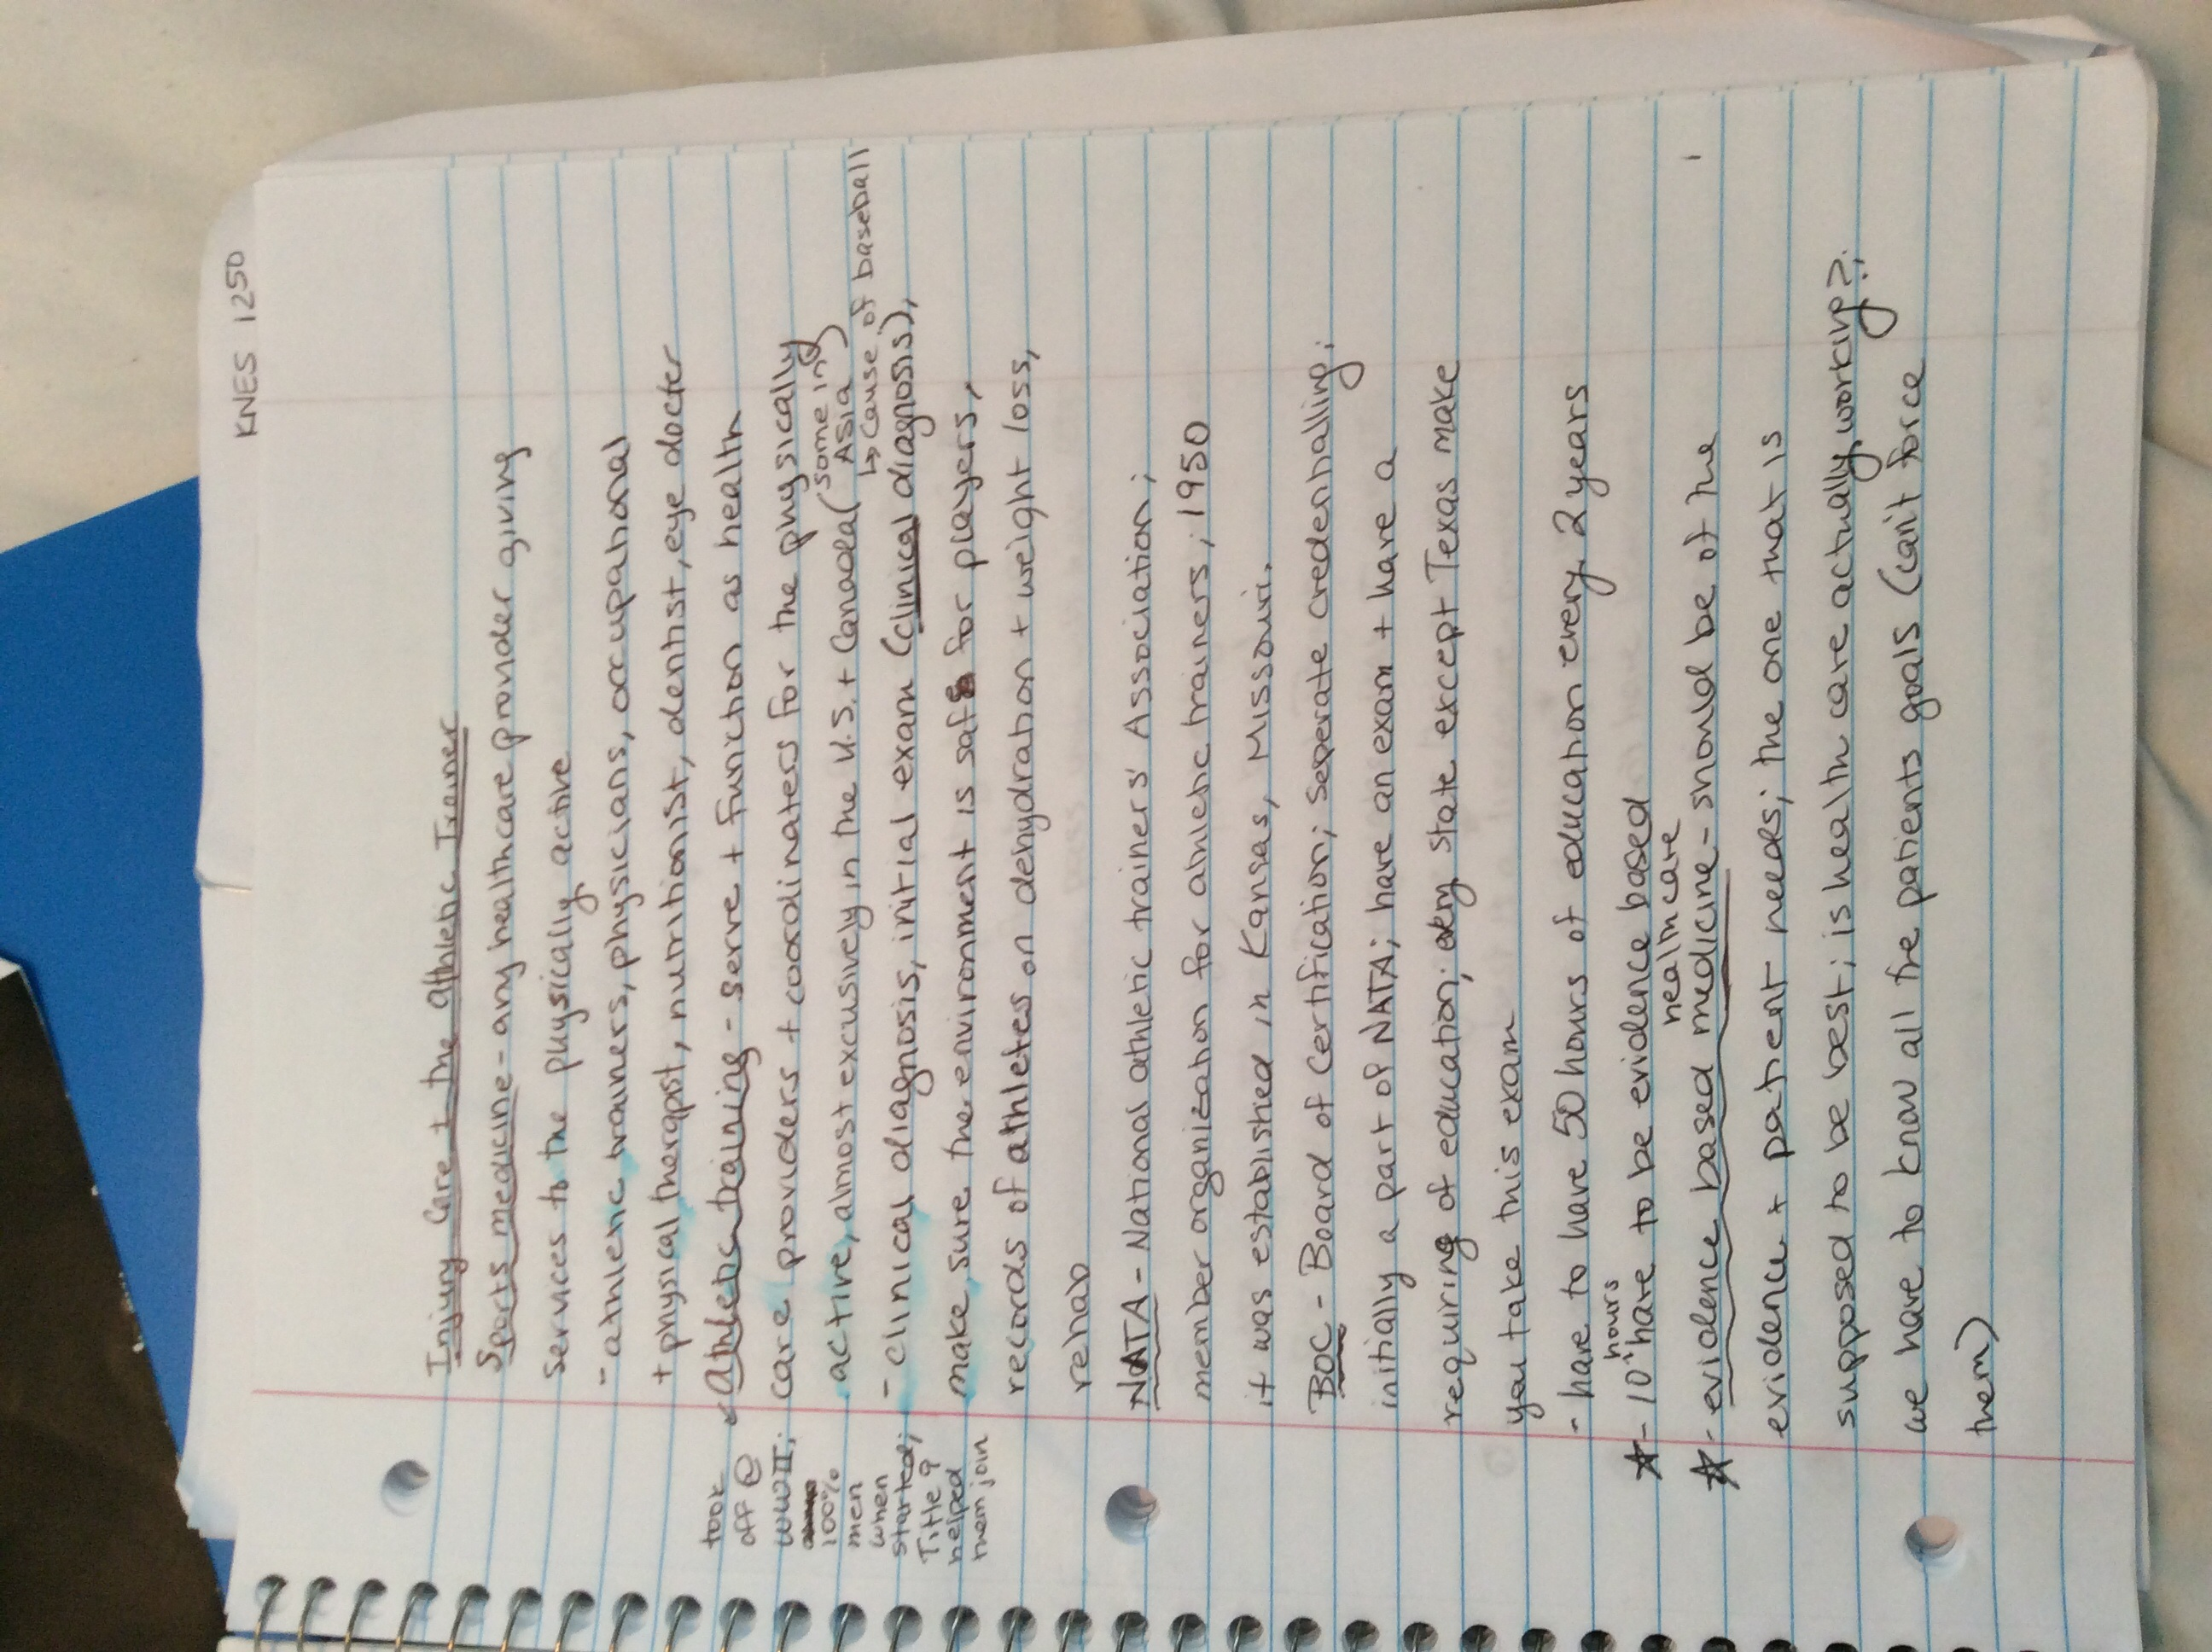 KNES 1250
Injury Care + the Athletic Trainer
Sports medicine - any healthcare provider giving
services to the physically active
- athletic trainers, physicians, occupational
+ physical therapst, nutritionist, dentist, eye docter
Athletic training - serve + function as health
care providers + coordinaters for the physically
active, almost excusively in the U.S. + Canada (some in Asia)
↳ cause of baseball
- clinical diagnosis, initial exam (clinical diagnosis),
make sure the environment is safe for players,
records of athletes on dehydration + weight loss,
rehab
took
off @
WWII;
100%
men
when
started;
Title 9
helped
them join
NATA - National athletic trainers' Association;
member organization for athletic trainers; 1950
it was established in Kansas, Missouri.
BOC - Board of Certification; seperate credentialling;
initially a part of NATA; have an exam + have a
requiring of education; every state except Texas make
you take this exam
- have to have 50 hours of education every 2 years
☆ - 10 hours have to be evidence based
healthcare
☆ - evidence based medicine - should be of the
evidence + patient needs; the one that is
supposed to be best; is health care actually working?;
we have to know all the patients goals (can't force
them)